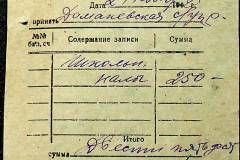 Дата
принять Доманевская с/упр
№№ бал. сч Содержание записи Сумма
Школьн.
налог 250 —
Итого
сумма Двести пятьдес